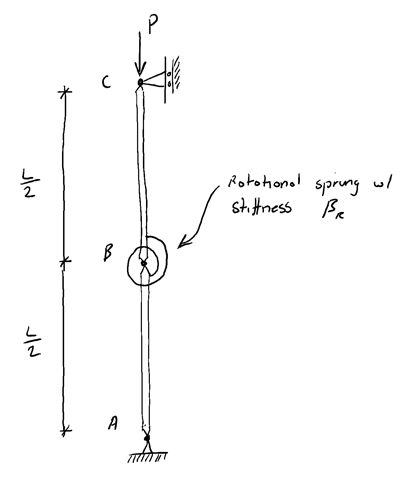 P
C
L/2
Rotational spring w/
stiffness βR
B
L/2
A